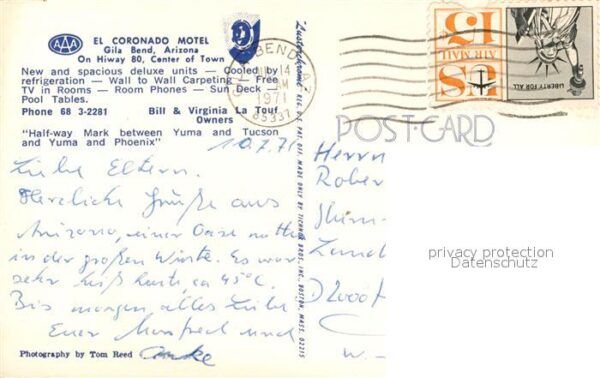 AAA
EL CORONADO MOTEL
Gila Bend, Arizona
On Hiway 80, Center of Town
New and spacious deluxe units — Cooled by
refrigeration — Wall to Wall Carpeting — Free
TV in Rooms — Room Phones — Sun Deck —
Pool Tables.
Phone 68 3-2281 Bill & Virginia La Touf
Owners
"Half-way Mark between Yuma and Tucson
and Yuma and Phoenix"
10.7.71
Liebe Eltern.
Herzliche Grüße aus
Arizona, einer Oase mitten
in der großen Wüste. Es war
sehr heiß heute, ca 45°C.
Bis morgen, alles Liebe
Euer Manfred und
Photography by Tom Reed
Lusterchrome REG. U.S. PAT. OFF. MADE ONLY BY TICHNOR BROS., INC., BOSTON, MASS. 02215
BEND, AZ
14
AM
1971
85337
15
AIR MAIL
US
LIBERTY FOR ALL
POST CARD
Herrn
Rober
D 2000
privacy protection
Datenschutz